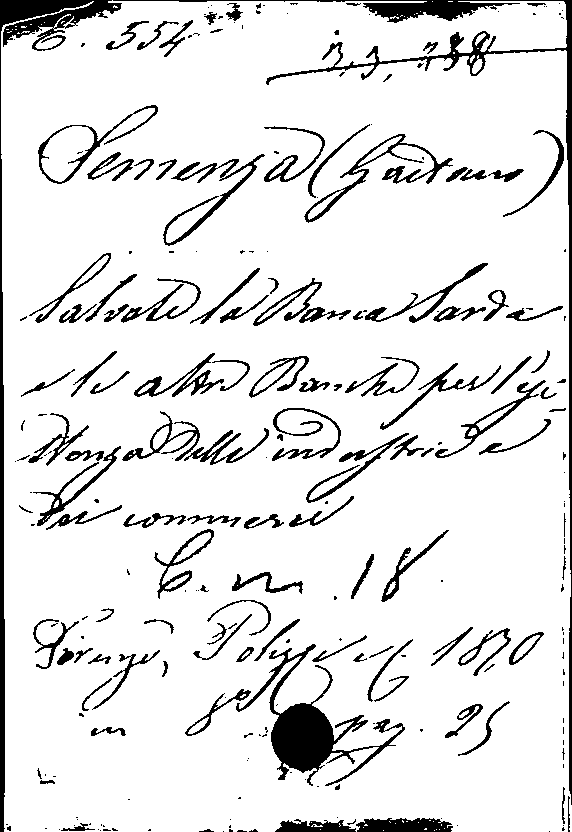 E. 554
3, 3, 238
Semenza (Gaetano)
Salvate la Banca Sarda
e le altre Banche per l'esi-
stenza delle industrie e
dei commerci
C. m. 18
Firenze, Polizzi e C. 1870
in 8º pag. 25